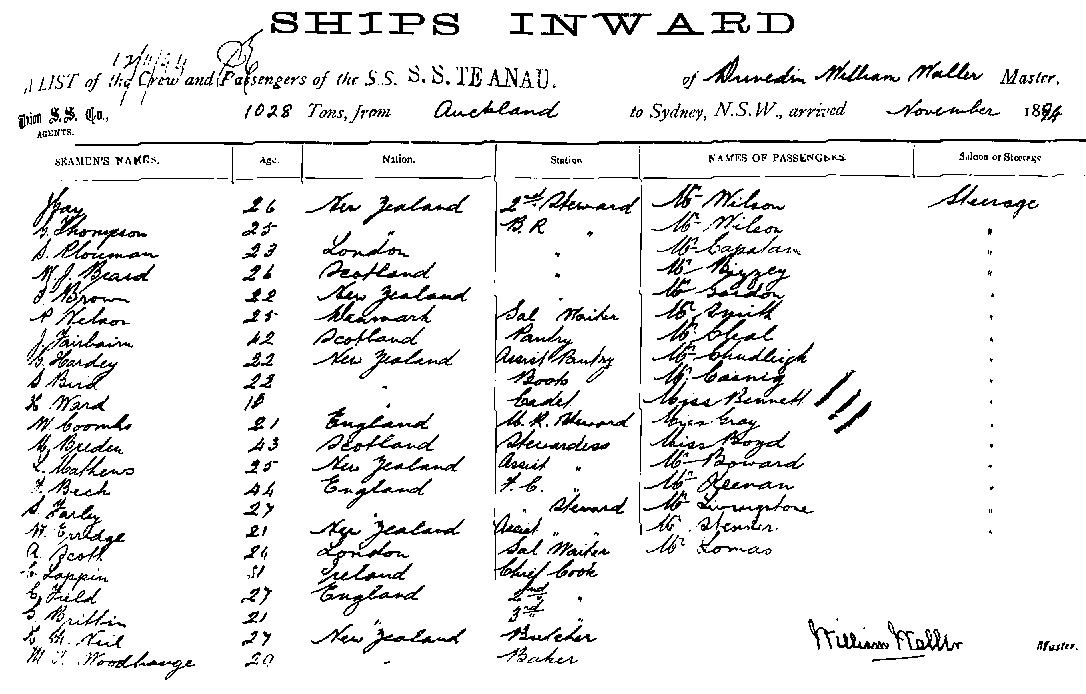 SHIPS INWARD
12/11/94
A LIST of the Crew and Passengers of the S.S. S.S. TE ANAU. of Dunedin William Waller Master,
Union S.S. Co., AGENTS. 1028 Tons, from Auckland to Sydney, N.S.W., arrived November 1894
SEAMEN'S NAMES. Age. Nation. Station NAMES OF PASSENGERS. Saloon or Steerage
J Gay 26 New Zealand 2nd Steward Mr Wilson Steerage
G Thompson 25 " B.R " Mr Wilson "
S. Plowman 23 London " Mr Capstan "
W. J. Beard 26 Scotland " Mr Bizzey "
J Brown 22 New Zealand Mr Gordon "
P Nelson 25 Denmark Sal Waiter Mr Smith "
J Fairbairn 42 Scotland Pantry Mr Cheal "
G Hardey 22 New Zealand Assist Pantry Mr Chudleigh "
S Bird 22 " Book Mr "
Ward 18 " Cadet Miss Bennett "
W. Coombs 21 England U. R. Steward Miss Gray "
Breden 43 Scotland Stewardess Miss Boyd "
L. Mathews 25 New Zealand Assist " Mr Boward "
F. Bech 44 England F. C. " Mr Keevan "
S Farley 27 " Steward Mr Livingstone "
W. Erridge 21 New Zealand Assist " Mr Stenner "
A Scott 24 London Sal Waiter Mr Lomas
Loppin 51 Ireland Chief Cook
C, Field 27 England 2nd "
G Brittin 21 " 3rd "
Neil 27 New Zealand Butcher William Waller Master.
M. J. Woodhange 20 " Baker